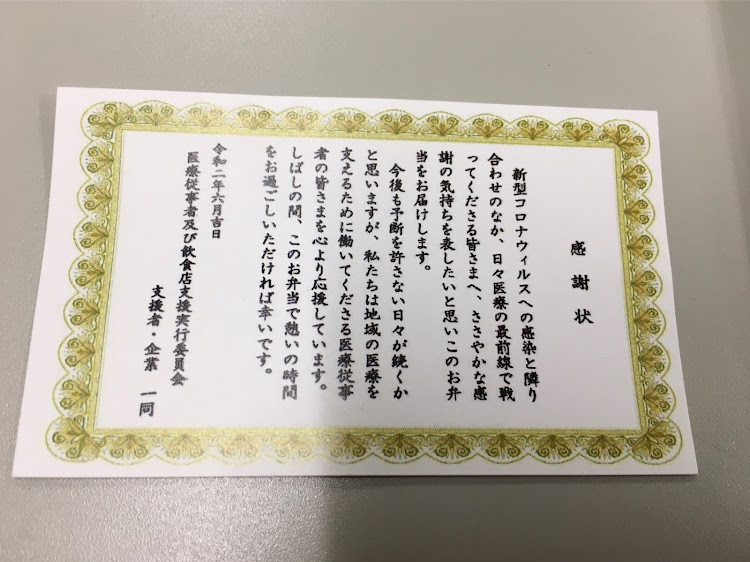 感謝状
新型コロナウィルスへの感染と隣り
合わせのなか、日々医療の最前線で戦
ってくださる皆さまへ、ささやかな感
謝の気持ちを表したいと思いこのお弁
当をお届けします。
今後も予断を許さない日々が続くか
と思いますが、私たちは地域の医療を
支えるために働いてくださる医療従事
者の皆さまを心より応援しています。
しばしの間、このお弁当で憩いの時間
をお過ごしいただければ幸いです。
令和二年六月吉日
医療従事者及び飲食店支援実行委員会
支援者・企業 一同